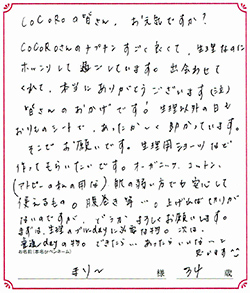 COCOROの皆さん、お元気ですか?
COCOROさんのナプキンすごく良くて、生理なのに
ホッコリして過ごしています。出会わせて
くれて、本当にありがとうございます(泣)
皆さんのおかげです!生理以外の日も
おりものシートで、あったかく助かっています。
そこでお願いです。生理用ショーツなど
作ってもらいたいです。オーガニックコットン、
(アトピーの私の用な)肌の弱い方でも安心して
使えるもの。腹巻き等…。上げればきりが
ないのですが、どうかよろしくお願いします。
まずは、生理のブルーdayに必需な物。次は、
普通dayの物。できたらいいな、あったらいいな〜と
思います
お名前(本名かペンネーム)
まり〜 様 34 歳